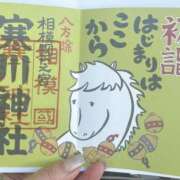 初詣
はじまりは
ここから
八方除
相模國一宮
寒川神社